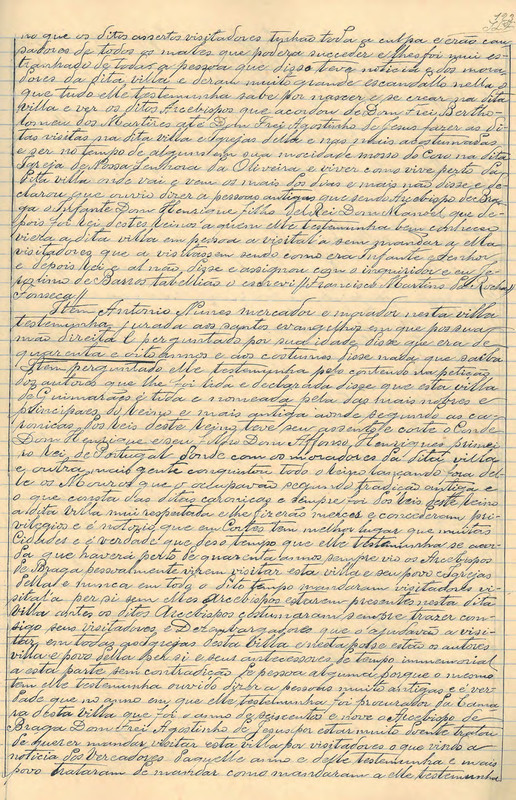 no que os ditos assertos visitadores tinhão toda a culpa e erão cau
sadores de todos os males que podera succeder e lhes foi mui es
tranhado de todas as pessoas que disso teve noticia e dos mora
dores da dita villa e deram muito grande escandallo nella o
que tudo elle testemunha sabe por nascer e se crear na dita
villa e ver os ditos Arcebispos que acordou de Dom Frei Bertho-
lomeu dos Martires até Dom Frei Agostinho de Jesus fazer as di
tas visitas na dita villa e Igrejas della e nas mais acostumadas
e ser no tempo de alguns em sua mocidade mosso do Coro na dita
Igreja de Nossa Senhora da Oliveira e viver como vive perto da
dita villa onde vai e vem os mais dos dias e mais não disse e de
clarou que ouvio dizer a pessoas antigas que sendo Arcebispo de Bra
ga o Infante Dom Henrique filho del Rei Dom Manoel que de-
pois foi Rei destes reinos a quem elle testemunha bem conheceo
viera a dita villa em pessoa a visital-a sem mandar a ella
visitadores que a visitassem sendo como era Infante e Senhor
e depois Rei e al não disse e assignou com o inquiridor e eu Je
ronimo de Barros tabellião o escrevi // Francisco Martins da Rocha //
Fonseca //
Item Antonio Nunes mercador e morador nesta villa
testemunha jurada aos santos evangelhos em que poz sua
mão direita e perguntado por sua idade disse que era de
quarenta e oito annos e aos costumes disse nada que saiba
Item perguntado elle testemunha pelo contendo na petição
dos autores que lhe foi lida e declarada disse que esta villa
de Guimarães é tida e nomeada pela das mais nobres e
principaes do reino e mais antiga aonde segundo as ca
ronicas dos Reis deste reino teve seu assento e corte o Conde
Dom Henrique e seu filho Dom Affonso Henriques primei
ro rei de Portugal donde com os moradores da dita villa
e outra mais gente conquistou todo o reino lançando fora del-
le os Mouros que o occupavão segundo tradição antiga e
o que consta das ditas caronicas e sempre foi dos Reis deste Reino
a dita villa mui respeitada e lhe fizerão merces e concederam pri
vilegios e é notorio que em Cortes tem melhor lugar que muitas
Cidades e é verdade que desd tempo que elle testemunha se acor
da que haverá perto de quarenta annos sempre vio os Arcebispos
de Braga pessoalmente virem visitar esta villa e seu povo e Igrejas
della e nunca em todo o dito tempo mandaram visitadores vi
sital-a per si sem elles Arcebispos estarem presentes nesta dita
villa antes os ditos Arcebispos costumaram sempre trazer com-
sigo seus visitadores e Dezembargadores que o ajudavão a visi-
tar em todas as Igrejas desta villa e nesta posse estão os autores
villa e povo della per si e seus antecessores de tempo immemorial
a esta parte sem contradição de pessoa alguma porque o mesmo
tem elle testemunha ouvido dizer a pessoas muito antigas e é ver-
dade que no anno em que elle testemunha foi procurador da Cama
ra desta villa que foi o anno de seiscentos e nove o Arcebispo de
Braga Dom Frei Agostinho de Jesus por estar muito doente tratou
de querer mandar visitar esta villa por visitadores o que vindo a
noticia dos Vereadores daquelle anno e delle testemunha e mais
povo trataram de mandar como mandaram a elle testemunha